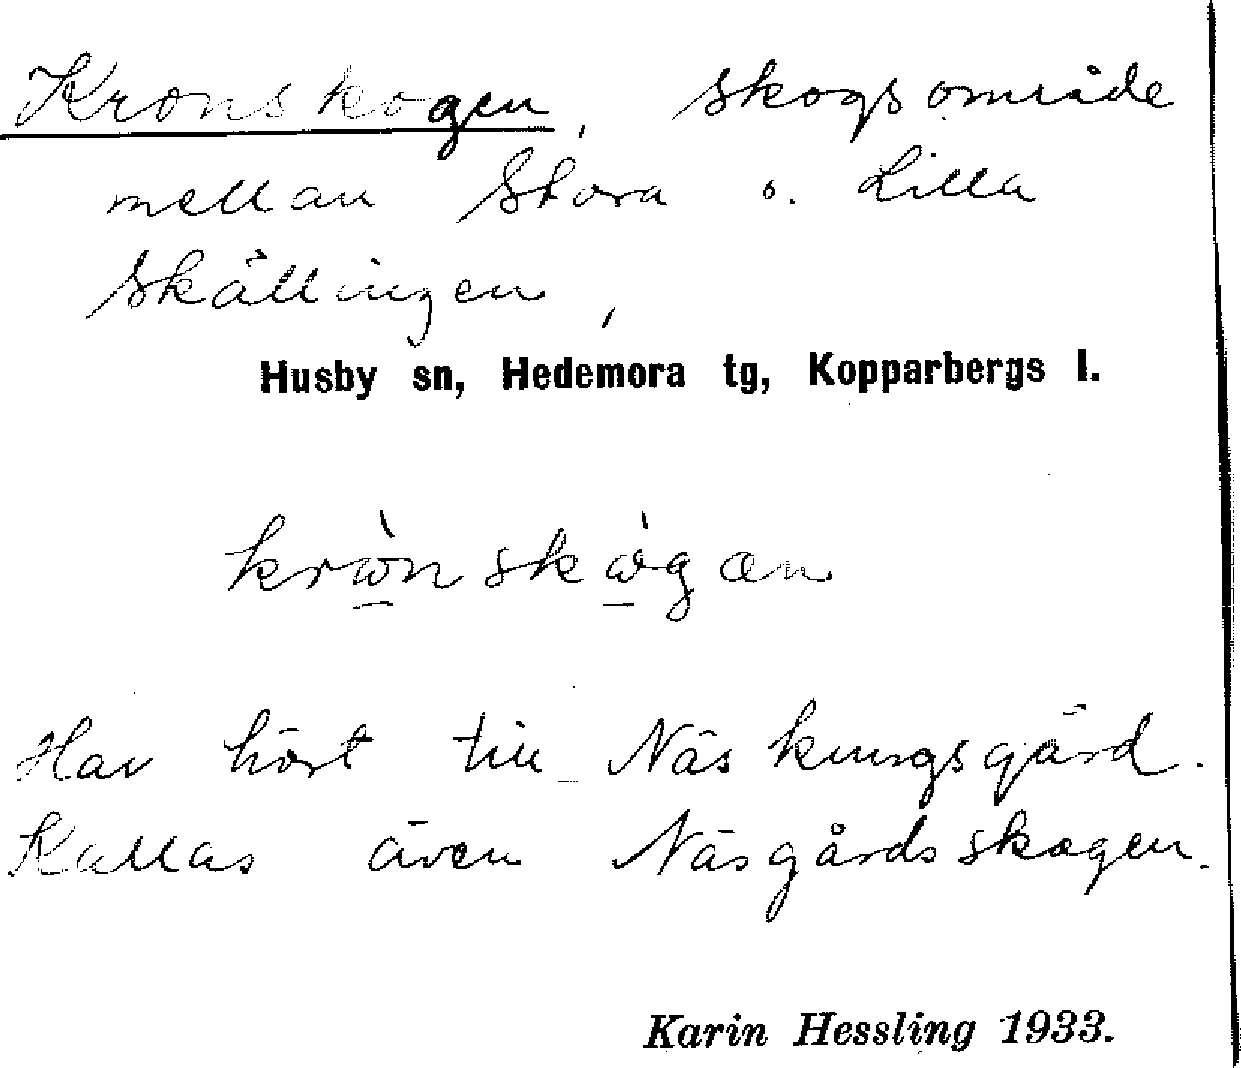 Kronskogen, skogsområde
mellan Stora o. Lilla
Skällingen,
Husby sn, Hedemora tg, Kopparbergs l.
krὼnskὼgan
Har hört till Näs kungsgård.
Kallas även Näsgårdsskogen.
Karin Hessling 1933.